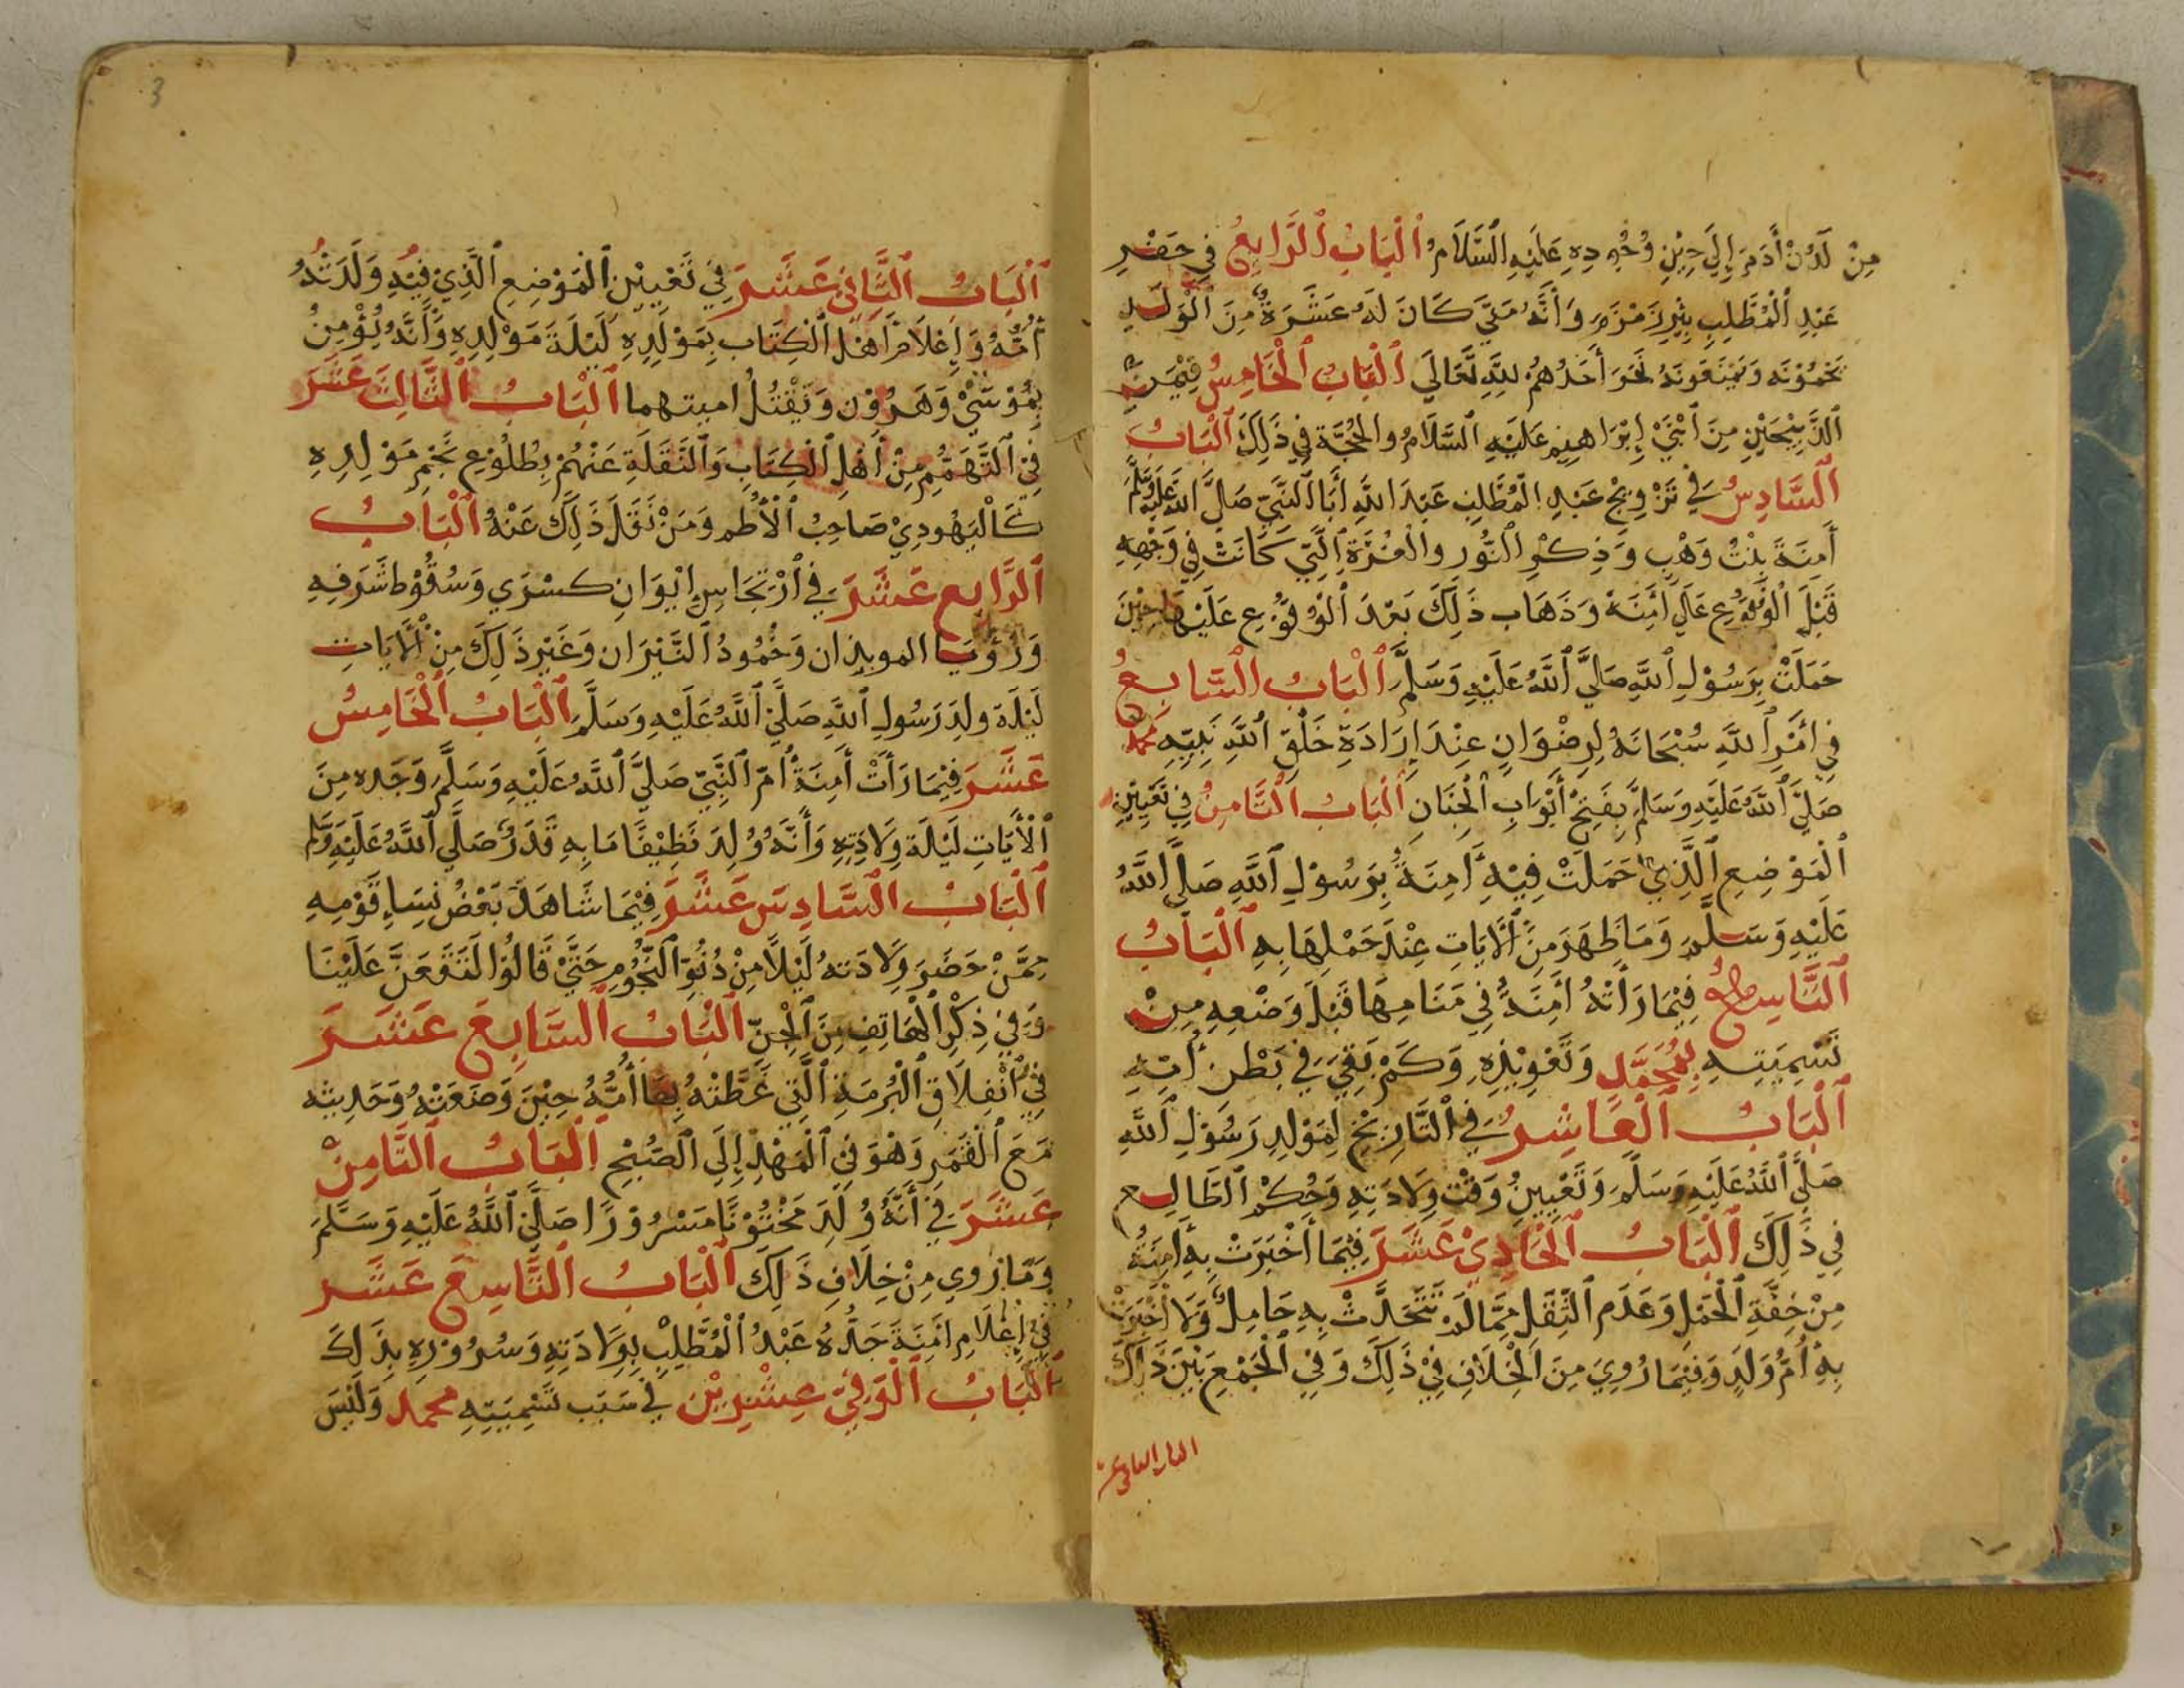 مِنْ لَدُنْ أَدَمَ إِلَى حِيْنِ وُجُودِهِ عَلَيْهِ ٱلسَّلَامُ ٱلْبَابُ ٱلرَّابِعُ فِي حَفْرِ
عَبْدِ ٱلْمُطَّلِبِ بِئْرَ زَمْزَمَ وَأَنَّهُ مَتَى كَانَ لَهُ عَشَرَةٌ مِنَ ٱلْوَلَدِ
يَحْمُوْنَه وَيَمْنَعُونَهُ نَحَرَ أَحَدُهُمْ لِلَّهِ تَعَالَى ٱلْبَابُ ٱلْخَامِسُ فِيْمَنِ
ٱلذَّبِيْحَيْنِ مِنَ ٱبْنَيْ إِبْرَاهِيْمَ عَلَيْهِ ٱلسَّلَامُ والحُجَّة فِي ذَلِكَ ٱلْبَابُ
ٱلسَّادِسُ فِي تَزْوِيْجِ عَبْدِ ٱلْمُطَّلِبِ عَبْدَ ٱللَّهِ أَبَا ٱلنَّبِيِّ صَلَّى ٱللَّهُ عَلَيْهِ وَسَلَّمَ
أَمِنَةَ بِنْتُ وَهْبٍ وَذِكْرِ ٱلنُّورِ والْغُرَّةِ ٱلَّتِي كَانَتْ فِي وَجْهِهِ
قَبْلَ ٱلْوُقُوْعِ عَلَى أَمِنَةَ وَذَهَابِ ذَلِكَ بَعْدَ ٱلْوُقُوْعِ عَلَيْهَا حِيْنَ
حَمَلَتْ بِرَسُوْلِ ٱللَّهِ صَلَّى ٱللَّهُ عَلَيْهِ وَسَلَّمَ ٱلْبَابُ ٱلسَّابِعُ
فِي أَمْرِ ٱللَّهِ سُبْحَانَهُ لِرِضْوَانِ عِنْدَ إِرَادَةِ خَلْقِ ٱللَّهِ نَبِيِّهِ مُحَمَّد
صَلَّى ٱللَّهُ عَلَيْهِ وَسَلَّمَ بِفَتْحِ أَبْوَابِ ٱلْجِنَانِ ٱلْبَابُ ٱلثَّامِنُ فِي تَعْيِيْنِ
ٱلْمَوْضِعِ ٱلَّذِي حَمَلَتْ فِيْهِ أَمِنَةُ بِرَسُوْلِ ٱللَّهِ صَلَّى ٱللَّهُ
عَلَيْهِ وَسَلَّمَ وَمَا ظَهَرَ مِنَ ٱلْأَيَاتِ عِنْدَ حَمْلِهَا بِهِ ٱلْبَابُ
ٱلتَّاسِعُ فِيْمَا رَأَتْهُ أَمِنَةُ فِي مَنَامِهَا قَبْلَ وَضْعِهِ مِنْ
تَسْمِيَتِهِ بِمُحَمَّدٍ وَتَعْوِيْذِهِ وَكَمْ بَقِيَ فِي بَطْنِ أُمِّهِ
ٱلْبَابُ ٱلْعَاشِرُ فِي ٱلتَّارِيْخِ لِمَوْلِدِ رَسُوْلِ ٱللَّهِ
صَلَّى ٱللَّهُ عَلَيْهِ وَسَلَّمَ وَتَعْيِينُ وَقْتِ وِلَادَتِهِ وَحُكْمِ ٱلطَّالِعِ
فِي ذَلِكَ ٱلْبَابُ ٱلْحَادِيْ عَشَرَ فِيْمَا أَخْبَرَتْ بِهِ أَمِنَةُ
مِنْ خِفَّةِ ٱلْحَمْلِ وَعَدَمِ ٱلثِّقَلِ مِمَّا لَمْ تَتَحَدَّثْ بِهِ حَامِلٌ وَلَا أَخْبَرَتْ
بِهِ أُمُّ وَلَدٍ وَفِيْمَا رُوِيَ مِنَ ٱلْخِلَافِ فِيْ ذَلِكَ وَفِي ٱلْجَمْعِ بَيْنَ ذَلِكَ
3
ٱلْبَابُ ٱلثَّانِي عَشَرَ فِي تَعْيِيْنِ ٱلْمَوْضِعِ ٱلَّذِيْ فِيْهِ وَلَدَتْهُ
أُمُّهُ وَإِعْلَامِ أَهْلِ ٱلْكِتَابِ بِمَوْلِدِهِ لَيْلَةَ مَوْلِدِهِ وَأَنَّهُ يُؤْمِنُ
بِمُوْسَيْ وَهَرُوْن وَيَقْتُلُ اميتهما ٱلْبَابُ ٱلثَّالِثَ عَشَرَ
فِي ٱلتَّهَمُّمِ مِنْ أَهْلِ ٱلْكِتَابِ وَٱلنَّقَلَةِ عَنْهُمْ بِطُلُوْعِ نَجْمِ مَوْلِدِهِ
كَالْيَهُودِيْ صَاحِبُ ٱلْأُطُمِ وَمَنْ نَقَلَ ذَلِكَ عَنْهُ ٱلْبَابُ
ٱلرَّابِع عَشَرَ فِي ٱرْتِجَاسِ إِيْوَانِ كسْرَي وَسُقُوْطِ شُرَفِهِ
وَرُؤْيَا الموبذان وَخُمُودُ ٱلنِّيْرَانِ وَغَيْرِ ذَلِكَ مِنَ ٱلْأَيَاتِ
لَيْلَةَ ولِدَ رَسُولِ ٱللَّهِ صَلَّى ٱللَّهُ عَلَيْهِ وَسَلَّمَ ٱلْبَابُ ٱلْخَامِسُ
عَشَرَ فِيْمَا رَأَتْ أَمِنَةُ أُمّ ٱلنَّبِيِّ صَلَّى ٱللَّهُ عَلَيْهِ وَسَلَّمَ وَجَده مِنَ
ٱلْأَيَاتِ لَيْلَةِ وِلَادَتِهِ وَأَنَّهُ وُلِدَ نَظِيْفًا مَا بِهِ قَذَرٌ صَلَّى ٱللَّهُ عَلَيْهِ وَسَلَّمَ
ٱلْبَابُ ٱلسَّادِسَ عَشَرَ فِيْمَا شَاهَدَ بَعْضُ نِسَاءِ قَوْمِهِ
مِمَّنْ حَضَرَ وِلَادَتهُ لَيْلًا مِنْ دُنُوِّ ٱلنُّجُوْمِ حَتَّيْ قَالُوْا لَتَقَعَنَّ عَلَيْنَا
وَفِي ذِكْرِ ٱلْهَاتِفِ مِنَ ٱلْجِنِّ ٱلْبَابُ ٱلسَّابِعَ عَشَرَ
فِي ٱنْفِلَاقِ ٱلْبُرْمَةِ ٱلَّتِي غَطَّتْهُ بِهَا أُمُّهُ حِيْنَ وَضَعَتْهُ وَحَدِيثِه
مَعَ ٱلْقَمَرِ وَهُوَ فِي ٱلْمَهْدِ إِلَى ٱلصُّبْحِ ٱلْبَابُ ٱلثَّامِنْ
عَشَرَ فِي أَنَّهُ وُلِدَ مَخْتُوْنًا مَسْرُوْرًا صَلَّى ٱللَّهُ عَلَيْهِ وَسَلَّمَ
وَمَا رُوِي مِنْ خِلَافِ ذَلِكَ ٱلْبَابُ ٱلتَّاسِعَ عَشَر
فِي إِعْلَامِ أَمِنَةَ جَدَّهُ عَبْدُ ٱلْمُطَّلِبِ بِوِلَادَتِهِ وَسُرُوْرِهِ بِذَلِكَ
ٱلْبَابُ ٱلْوَفِيْ عِشْرِيْن فِي سَبَب تَسْمِيَتِهِ محمد وَلَيْسَ